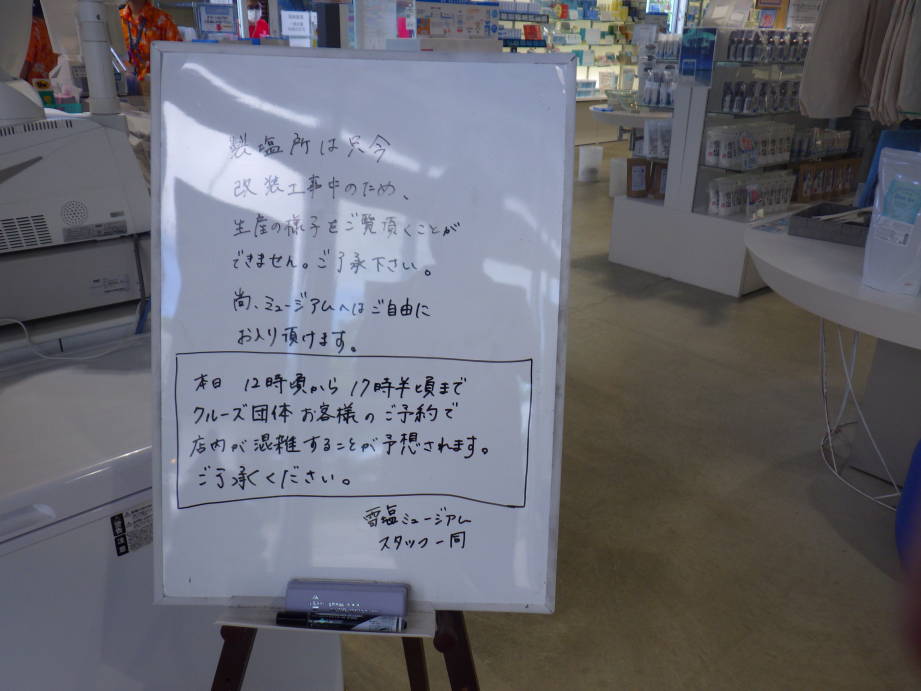 製塩所は只今
改装工事中のため、
生産の様子をご覧頂くことが
できません。ご了承下さい。
尚、ミュージアムへはご自由に
お入り頂けます。
本日 12時頃から 17時半頃まで
クルーズ団体 お客様のご予約で
店内が混雑することが予想されます。
ご了承ください。
雪塩ミュージアム
スタッフ一同